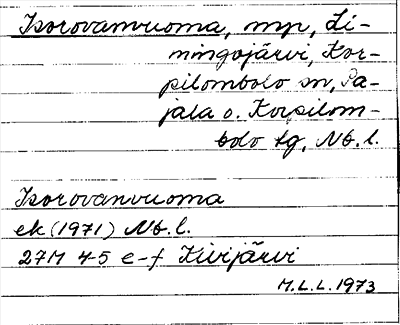 Isorovanvuoma, myr, Li-
mingojärvi, Kor-
pilombolo sn, Pa-
jala o. Korpilom-
bolo tg, Nb. l.
Isorovanvuoma
ek (1971) Nb. l.
27M 4-5 e-f Kivijärvi
M.L.L. 1973